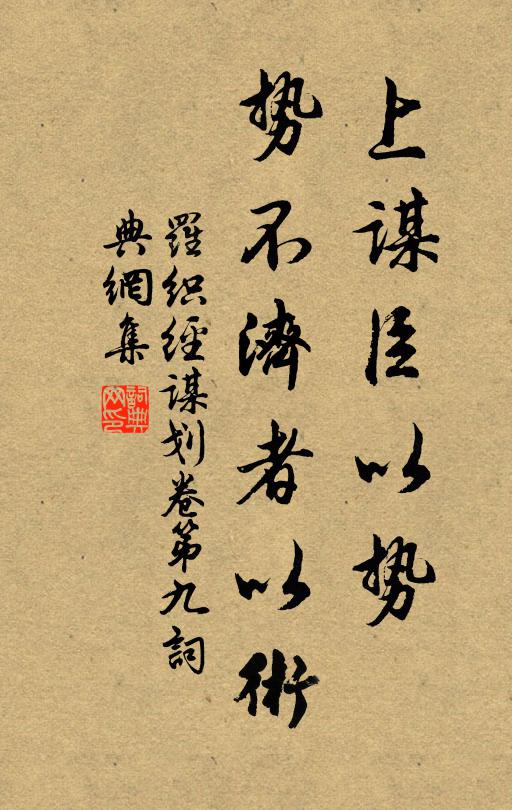 上谋臣以势
势不濟者以術
羅织經谋划卷第九詞
典網集
詞典
网印